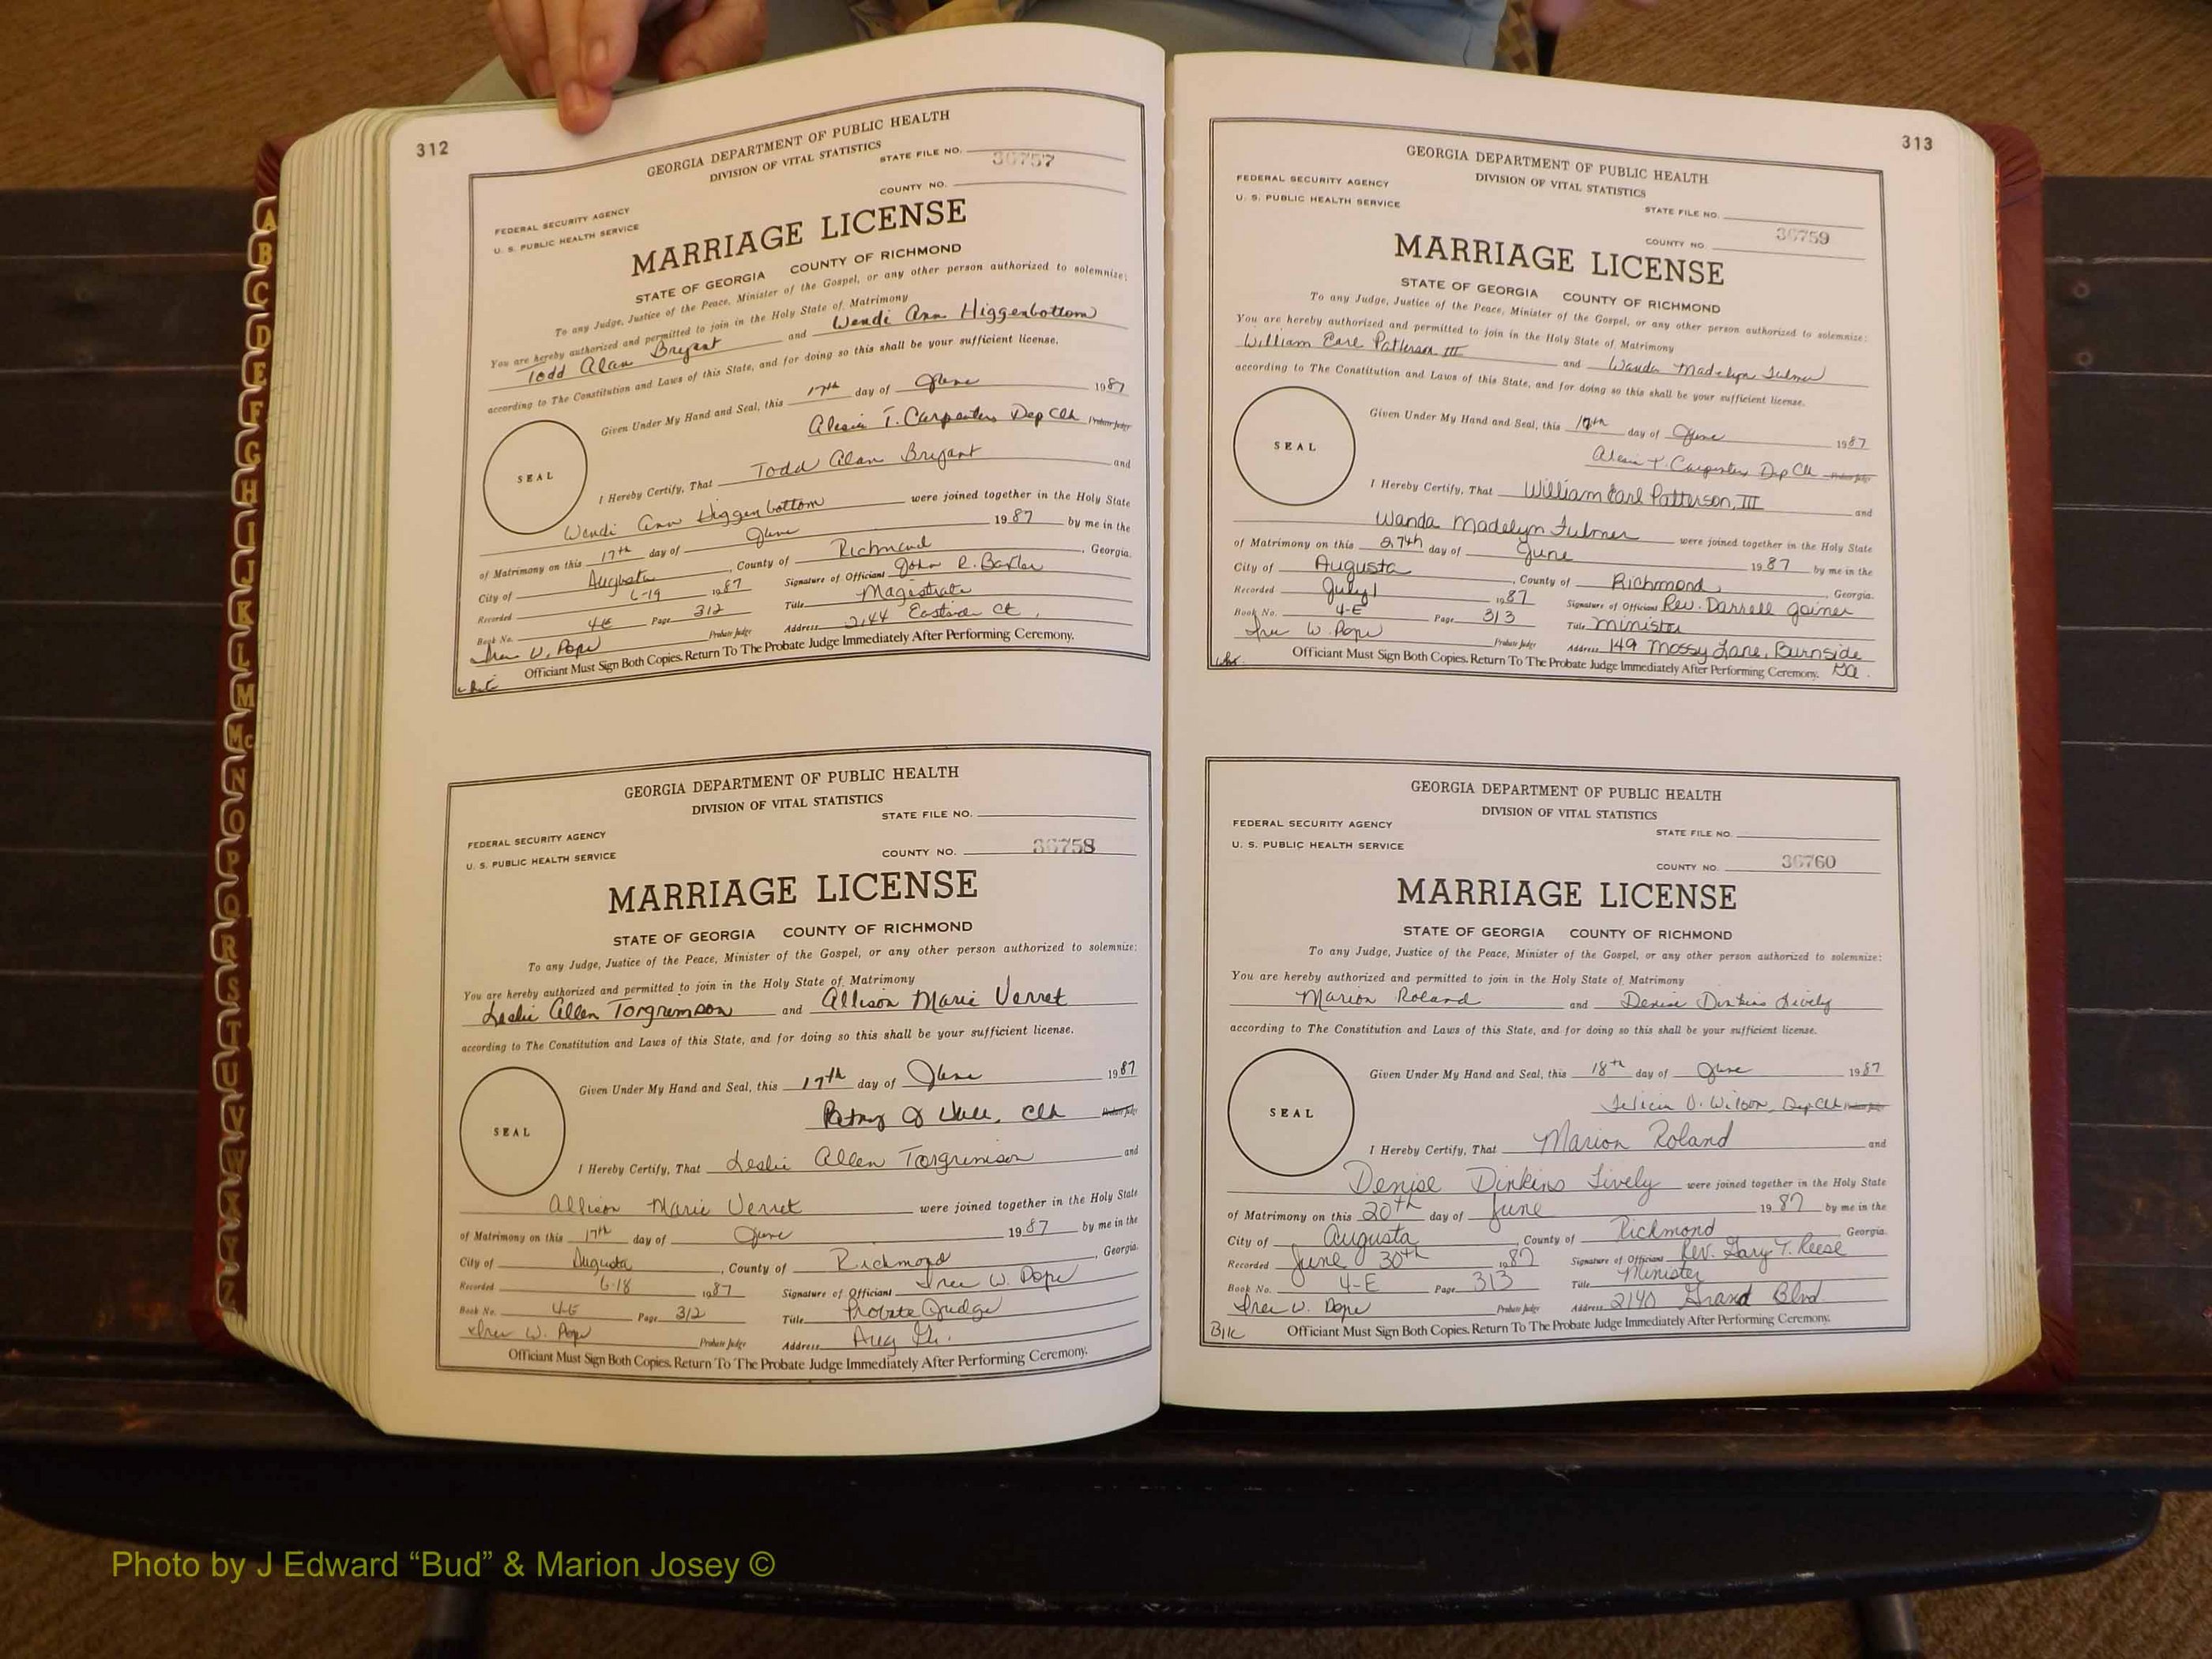 312
GEORGIA DEPARTMENT OF PUBLIC HEALTH
DIVISION OF VITAL STATISTICS
STATE FILE NO. 36757
COUNTY NO.
FEDERAL SECURITY AGENCY
U. S. PUBLIC HEALTH SERVICE
MARRIAGE LICENSE
STATE OF GEORGIA COUNTY OF RICHMOND
To any Judge, Justice of the Peace, Minister of the Gospel, or any other person authorized to solemnize:
You are hereby authorized and permitted to join in the Holy State of Matrimony
Todd Alan Bryant and Wendi Ann Higgenbottom
according to The Constitution and Laws of this State, and for doing so this shall be your sufficient license.
Given Under My Hand and Seal, this 17th day of June 1987
Alesia T. Carpenter Dep Clk Probate Judge
SEAL
I Hereby Certify, That Todd Alan Bryant and
Wendi Ann Higgenbottom were joined together in the Holy State
of Matrimony on this 17th day of June 1987 by me in the
City of Augusta, County of Richmond, Georgia.
Recorded 6-19 1987 Signature of Officiant John R. Baxter
Book No. 4E Page 312 Title Magestrate
W. Pope Probate Judge Address 2144 Eastside Ct.
Officiant Must Sign Both Copies. Return To The Probate Judge Immediately After Performing Ceremony.
GEORGIA DEPARTMENT OF PUBLIC HEALTH
DIVISION OF VITAL STATISTICS
STATE FILE NO.
FEDERAL SECURITY AGENCY
U. S. PUBLIC HEALTH SERVICE
COUNTY NO. 36758
MARRIAGE LICENSE
STATE OF GEORGIA COUNTY OF RICHMOND
To any Judge, Justice of the Peace, Minister of the Gospel, or any other person authorized to solemnize:
You are hereby authorized and permitted to join in the Holy State of Matrimony
Leslie Allen Torgrimson and Allison Marie Verret
according to The Constitution and Laws of this State, and for doing so this shall be your sufficient license.
Given Under My Hand and Seal, this 17th day of June 1987
Clk Probate Judge
SEAL
I Hereby Certify, That Leslie Allen Torgrimson and
Allison Marie Verret were joined together in the Holy State
of Matrimony on this 17th day of June 1987 by me in the
City of Augusta, County of Richmond, Georgia.
Recorded 6-18 1987 Signature of Officiant W. Pope
Book No. 4-E Page 312 Title Probate Judge
W. Pope Probate Judge Address Aug Ga.
Officiant Must Sign Both Copies. Return To The Probate Judge Immediately After Performing Ceremony.
313
GEORGIA DEPARTMENT OF PUBLIC HEALTH
DIVISION OF VITAL STATISTICS
FEDERAL SECURITY AGENCY
U. S. PUBLIC HEALTH SERVICE
STATE FILE NO.
COUNTY NO. 36759
MARRIAGE LICENSE
STATE OF GEORGIA COUNTY OF RICHMOND
To any Judge, Justice of the Peace, Minister of the Gospel, or any other person authorized to solemnize:
You are hereby authorized and permitted to join in the Holy State of Matrimony
William Earl Patterson III and Wanda Madelyn Fulmer
according to The Constitution and Laws of this State, and for doing so this shall be your sufficient license.
Given Under My Hand and Seal, this day of June 1987
Alesia T. Carpenter Dep Clk Probate Judge
SEAL
I Hereby Certify, That William Earl Patterson, III and
Wanda Madelyn Fulmer were joined together in the Holy State
of Matrimony on this 27th day of June 1987 by me in the
City of Augusta, County of Richmond, Georgia.
Recorded July 1 1987 Signature of Officiant Rev. Darrell Joiner
Book No. 4-E Page 313 Title Minister
W. Pope Probate Judge Address 149 Mossy Lane, Burnside Ga.
Officiant Must Sign Both Copies. Return To The Probate Judge Immediately After Performing Ceremony.
GEORGIA DEPARTMENT OF PUBLIC HEALTH
DIVISION OF VITAL STATISTICS
FEDERAL SECURITY AGENCY
STATE FILE NO.
U. S. PUBLIC HEALTH SERVICE
COUNTY NO. 36760
MARRIAGE LICENSE
STATE OF GEORGIA COUNTY OF RICHMOND
To any Judge, Justice of the Peace, Minister of the Gospel, or any other person authorized to solemnize:
You are hereby authorized and permitted to join in the Holy State of Matrimony
Marion Roland and Denise Dinkins Lively
according to The Constitution and Laws of this State, and for doing so this shall be your sufficient license.
Given Under My Hand and Seal, this 18th day of June 1987
Felicia O. Wilson, Dep Clk Probate Judge
SEAL
I Hereby Certify, That Marion Roland and
Denise Dinkins Lively were joined together in the Holy State
of Matrimony on this 20th day of June 1987 by me in the
City of Augusta, County of Richmond, Georgia.
Recorded June 30th 1987 Signature of Officiant Rev. Gary T. Reese
Book No. 4-E Page 313 Title Minister
W. Pope Probate Judge Address 2140 Grand Blvd
Officiant Must Sign Both Copies. Return To The Probate Judge Immediately After Performing Ceremony.
A
B
C
D
E
F
G
H
I
J
K
L
M
Mc
N
O
P
Q
R
S
T
U
V
W
X
Y
Z
Photo by J Edward “Bud” & Marion Josey ©